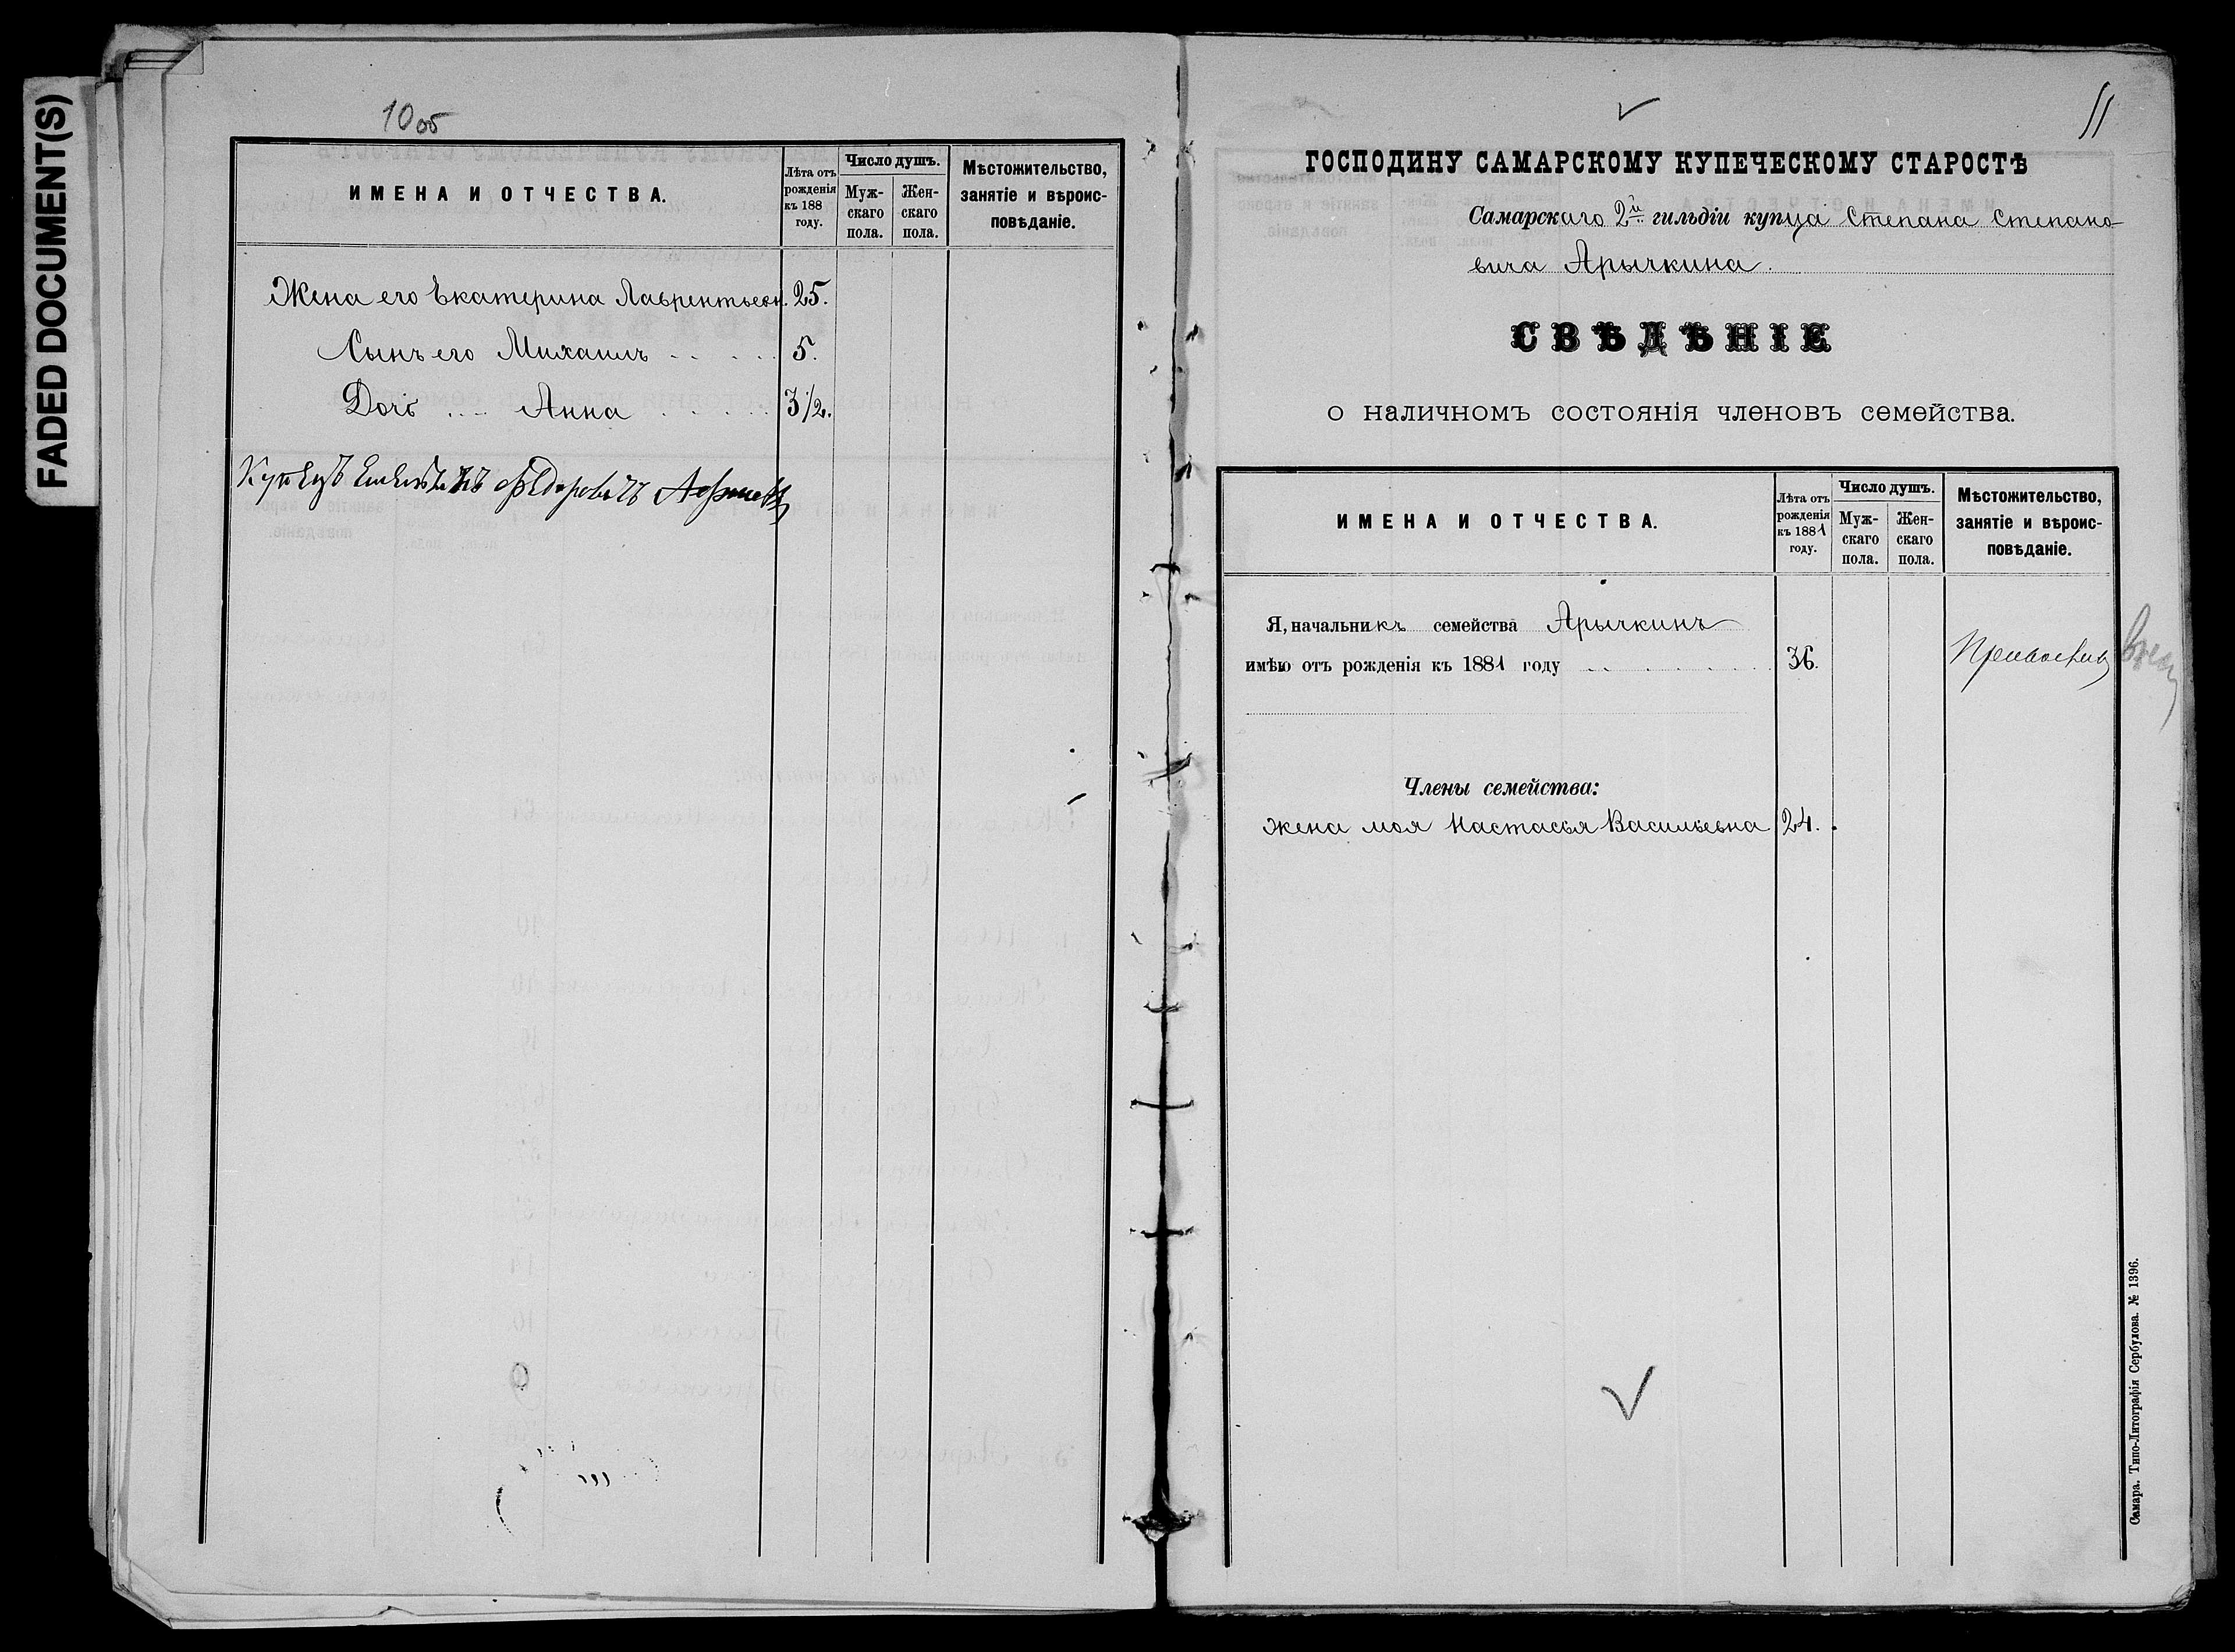 FADED DOCUMENT(S)
10об
ИМЕНА И ОТЧЕСТВА.
Лѣта отъ рожденія къ 188 году.
Число душъ.
Мужскаго пола.
Женскаго пола.
Мѣстожительство, занятіе и вѣроисповѣданіе.
Жена его Екатерина Лаврентьевн. 25.
Сынъ его Михаилъ 5.
Дочь Анна 3 1/2.
Купецъ Федоровъ
11
ГОСПОДИНУ САМАРСКОМУ КУПЕЧЕСКОМУ СТАРОСТѢ
Самарскаго 2й гильдіи купца Степана Степано-
вича Арычкина.
СВѢДѢНІЕ
о наличномъ состоянія членовъ семейства.
ИМЕНА И ОТЧЕСТВА.
Лѣта отъ рожденія къ 1881 году.
Число душъ.
Мужскаго пола.
Женскаго пола.
Мѣстожительство, занятіе и вѣроисповѣданіе.
Я, начальникъ семейства Арычкинъ
имѣю отъ рожденія къ 1881 году 36.
Члены семейства:
жена моя Настасья Васильевна 24.
Самара. Типо-Литографія Сербулова. № 1396.